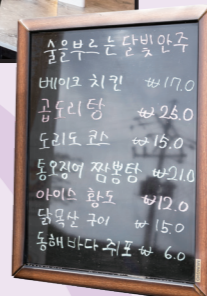 술을부르는달빛안주
베이크 치킨 ₩17.0
곱도리탕 ₩25.0
도리도 코스 ₩15.0
통오징어 짬뽕탕 ₩21.0
아이스 황도 ₩12.0
닭목살 구이 ₩15.0
동해바다 쥐포 ₩6.0